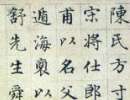 陳氏方
宋將仕郎
甫以名父
海以
舒先生舜